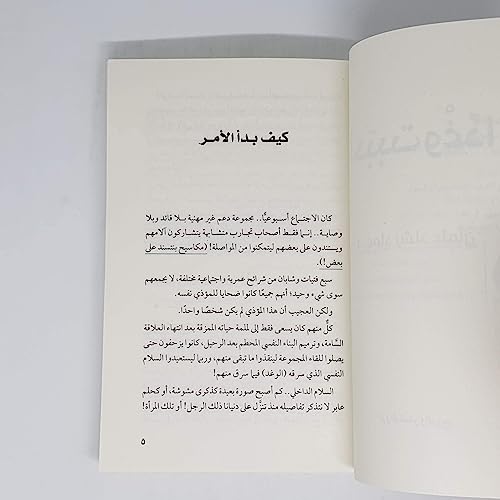 كيف بدأ الأمر
كان الاجتماع أسبوعيًّا.. مجموعة دعم غير مهنية بلا قائد وبلا
وصاية.. إنما فقط أصحاب تجارب متشابهة يتشاركون آلامهم
ويستندون على بعضهم ليتمكنوا من المواصلة! (مكاسيح بتتسند على
بعض!).
سبع فتيات وشابان من شرائح عمرية واجتماعية مختلفة، لا يجمعهم
سوى شيء وحيد؛ أنهم جميعًا كانوا ضحايا للمؤذي نفسه.
ولكن العجيب أن هذا المؤذي لم يكن شخصًا واحدًا.
كلٌّ منهم كان يسعى فقط إلى لملمة حياته الممزقة بعد انتهاء العلاقة
السَّامة، وترميم البناء النفسي المحطم بعد الرحيل، كانوا يزحفون حتى
يصلوا للقاء المجموعة لينقذوا ما تبقى منهم، وربما ليستعيدوا السلام
النفسي الذي سرقه (الوغد) فيما سرق منهم!
السلام الداخلي.. كم أصبح صورة بعيدة كذكرى مشوشة، أو كحلم
عابر لا نتذكر تفاصيله منذ تنزَّل على دنيانا ذلك الرجل! أو تلك المرأة!
٥